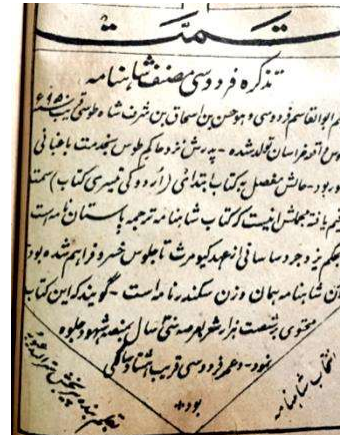 تمت
تذکره فردوسی مصنف شاهنامه
ابوالقاسم فردوسی و هو حسن بن اسحاق بن شرف شاه طوسی
تولد شده - پدرش نزد حاکم طوس بخدمت باغبانی
بود - حالش مفصل به کتاب ابتدائی (اردو کی تیسری کتاب)
یافته مجملش اینست که کتاب شاهنامه ترجمه پاستان نامه است
یزدجرد ساسانی از عهد کیومرث تا جلوس خسرو فراهم شده بود
شاهنامه همان وزن سکندر نامه است - گویند که این کتاب
محتوی بر شصت هزار شعر بعرصه سی سال بمنصه شهود جلوه
نمود - و عمر فردوسی قریب هشتاد سالگی
بود
انتخاب شاهنامه
بقلم